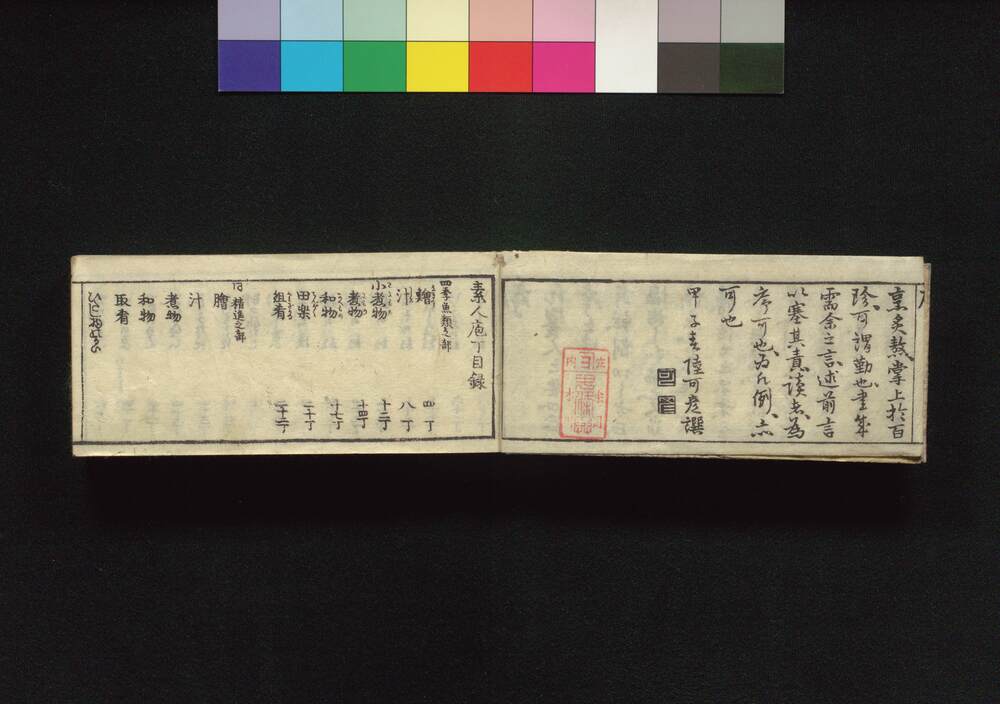 烹炙熬掌上於百
珍可謂勤也書成
需余之言述前言
以塞其責読者為
序可也為凡例亦
可也
甲子春陸可彦譔
素人庖丁目録
四季魚類之部
鱠 四丁
汁 八丁
小煮物 十二丁
煮物 十四丁
和物 十七丁
田楽 二十丁
組肴 二十二丁
同精進之部
膾
汁
煮物
和物
取肴